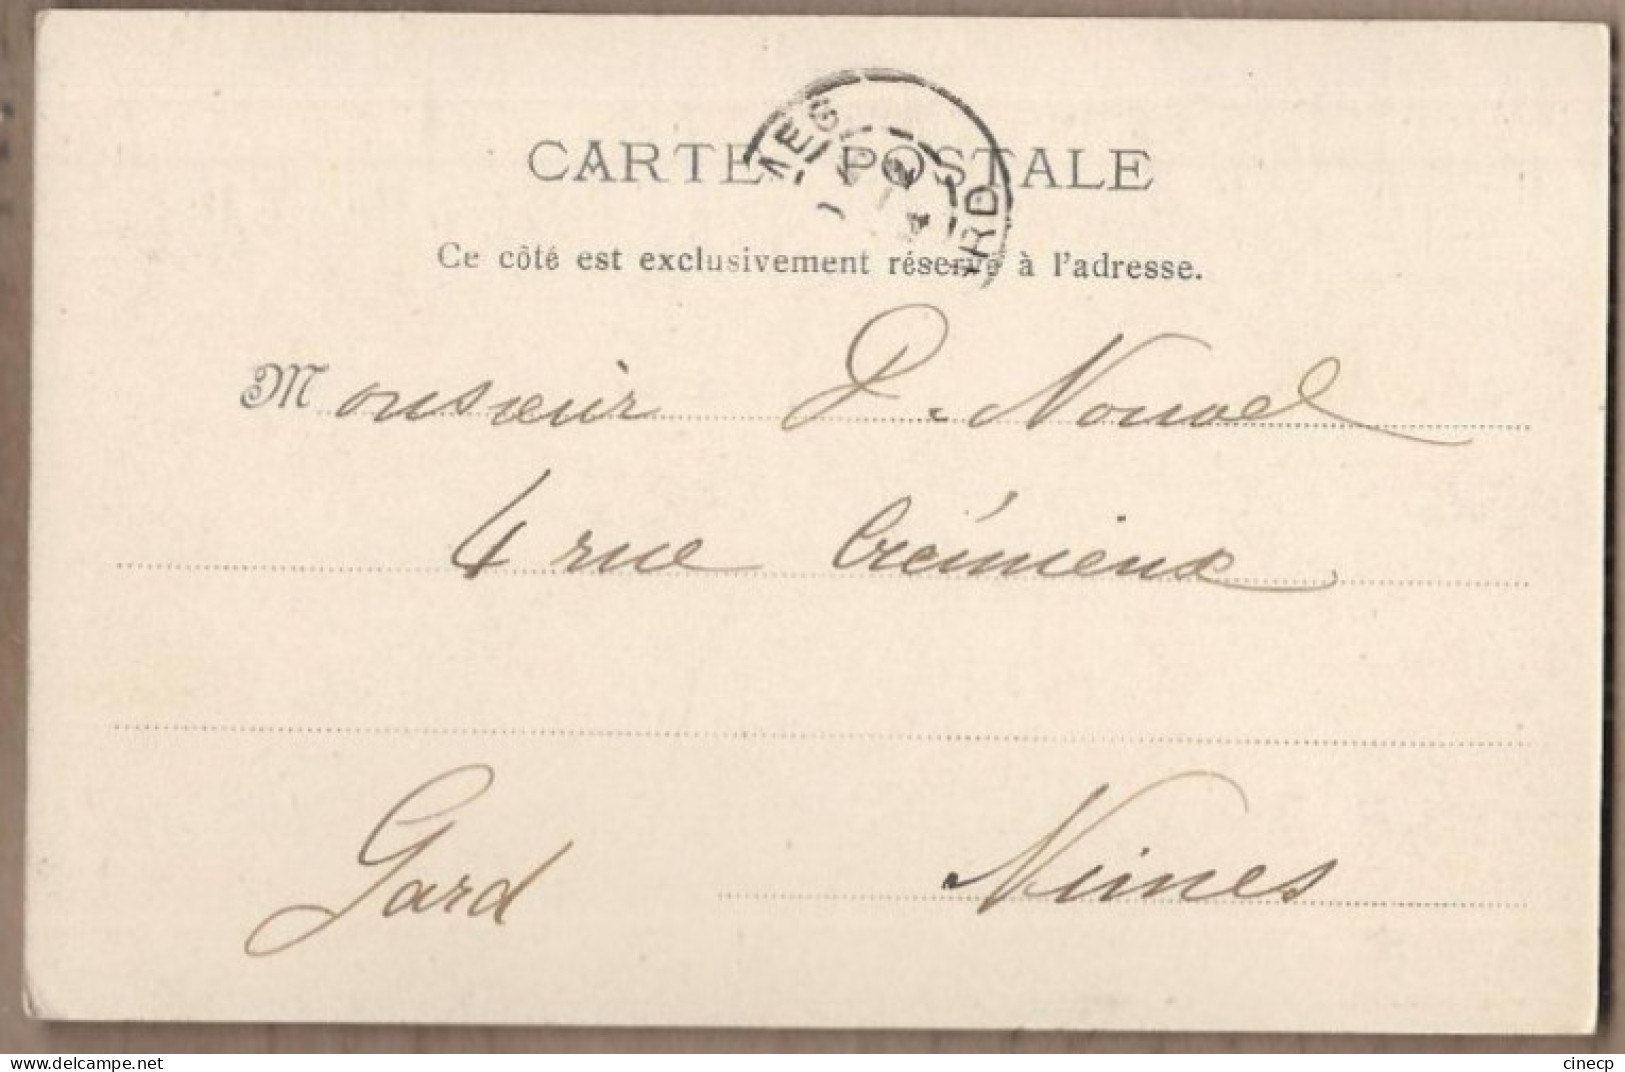 CARTE POSTALE
Ce côté est exclusivement réservé à l'adresse.
Monsieur P. Nouvel
4 rue Crémieux
Gard Nimes
delcampe.net
cinecp